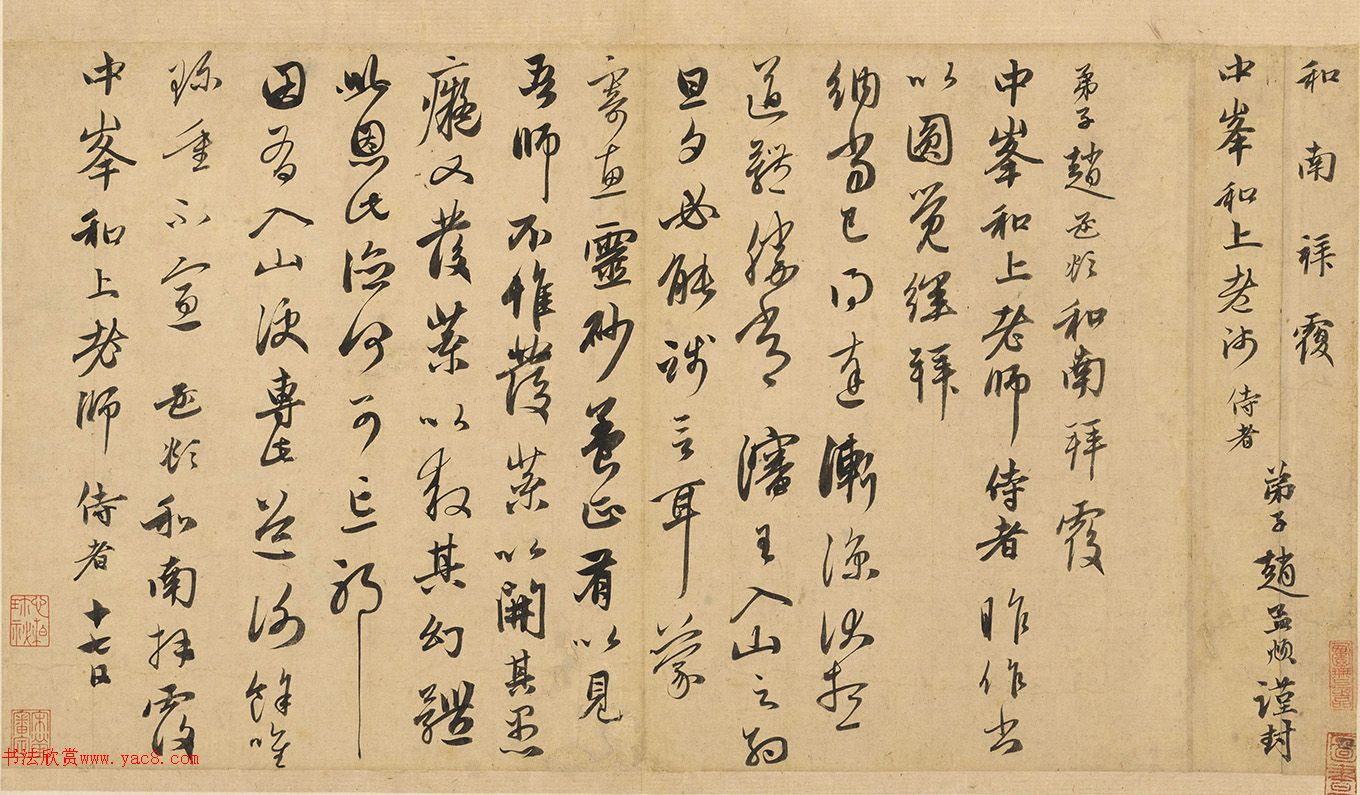 和南拜覆
中峯和上老師侍者
弟子趙孟頫謹封
弟子趙孟頫和南拜覆
中峯和上老師侍者昨作書
以圓覺經拜
納當已得達漸涼伏想
道體勝常瀋王入山之約
旦夕必能踐言耳蒙
寄惠靈砂養正有以見
吾師不惟發藥以開其愚
癡又發藥以救其幻體
此恩此德何可忘耶
因有入山便專此道謝餘唯
珍重不宣孟頫和南拜覆
中峯和上老師侍者十七日
书法欣赏www.yac8.com